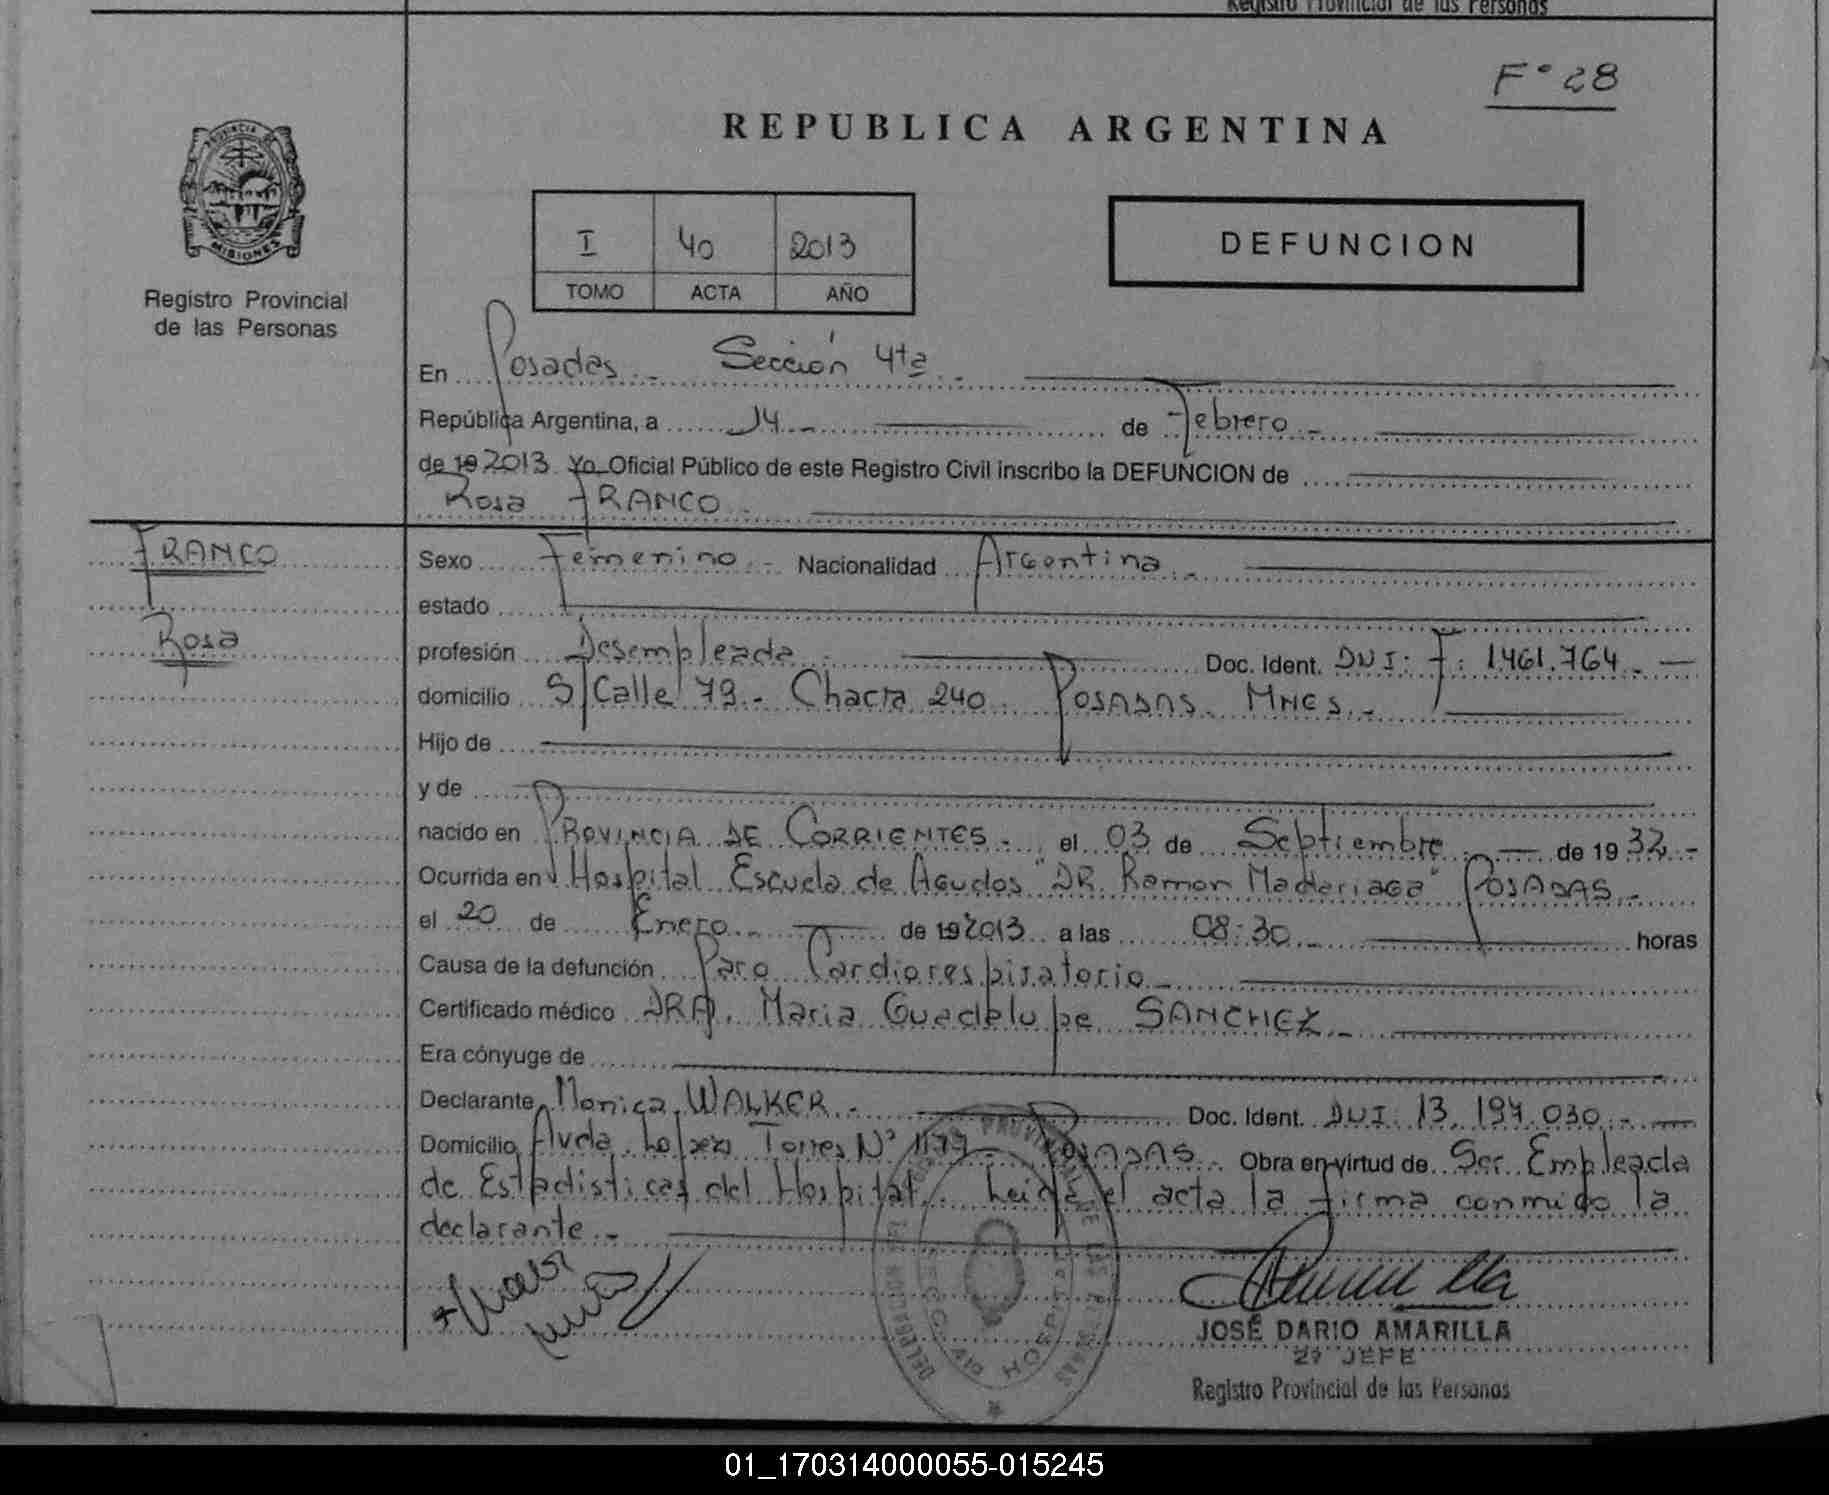 Registro Provincial de las Personas
F° 28
REPUBLICA ARGENTINA
PROVINCIA DE
MISIONES
Registro Provincial
de las Personas
I 40 2013
TOMO ACTA AÑO
DEFUNCION
En Posadas - Sección 4ta -
República Argentina, a 14 - de Febrero -
de 19 2013 Yo Oficial Público de este Registro Civil inscribo la DEFUNCION de
Rosa FRANCO -
FRANCO
Rosa
Sexo Femenino - Nacionalidad Argentina -
estado
profesión Desempleada - Doc. Ident. DNI: F: 1.461.764 -
domicilio S/Calle 79 - Chacra 240 POSADAS. MNES. -
Hijo de
y de
nacido en PROVINCIA DE CORRIENTES - el 03 de Septiembre - de 19 32 -
Ocurrida en Hospital Escuela de Agudos "DR. Ramon Madariaga" POSADAS -
el 20 de Enero - de 19 2013 a las 08:30 - horas
Causa de la defunción Paro Cardiorespiratorio -
Certificado médico DRA. Maria Guadelupe SANCHEZ -
Era cónyuge de
Declarante Monica WALKER - Doc. Ident. DNI: 13.194.030 -
Domicilio Avda. Lopez Torres N° 1177 - POSADAS - Obra en virtud de Ser Empleada
de Estadisticas del Hospital. Leida el acta la firma conmigo la
declarante -
JOSÉ DARIO AMARILLA
2° JEFE
Registro Provincial de las Personas
01_170314000055-015245